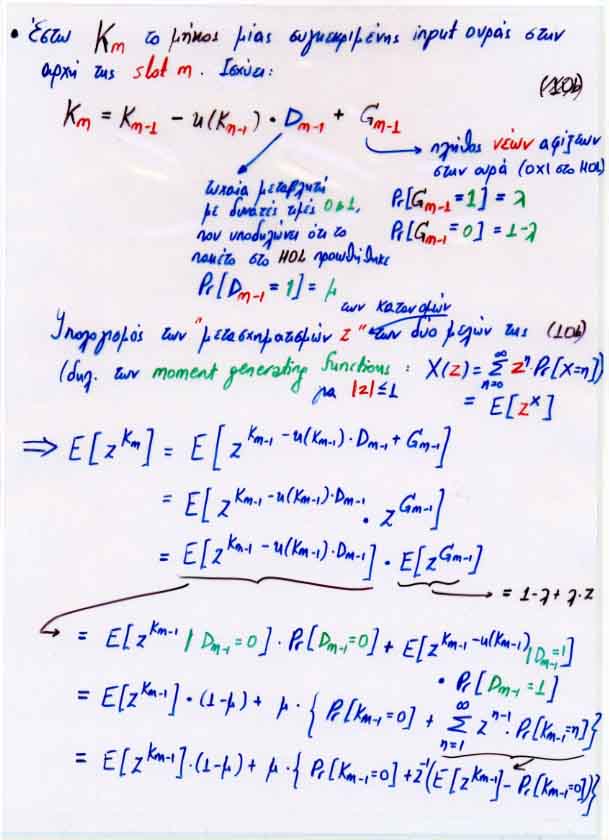 • Έστω Km το μήκος μίας συγκεκριμένης input ουράς στην
αρχή της slot m. Ισχύει:
(10b)
Km = Km-1 - u(Km-1) • Dm-1 + Gm-1
πλήθος νέων αφίξεων
στην ουρά (όχι στο HOL)
Pr[Gm-1=1] = λ
Pr[Gm-1=0] = 1-λ
τυχαία μεταβλητή
με δυνατές τιμές 0 ή 1,
που υποδηλώνει ότι το
πακέτο στο HOL προωθήθηκε
Pr[Dm-1=1] = μ
των κατανομών
Υπολογισμός των "μετασχηματισμών z" των δυο μελών της (10b)
(δηλ. των moment generating functions : X(z) = Σ_{n=0}^{∞} z^n · Pr[X=n])
για |z| ≤ 1 = E[z^X]
⇒ E[z^{Km}] = E[z^{Km-1 - u(Km-1)·Dm-1 + Gm-1}]
= E[z^{Km-1 - u(Km-1)·Dm-1} • z^{Gm-1}]
= E[z^{Km-1 - u(Km-1)·Dm-1}] • E[z^{Gm-1}]
= 1-λ + λ·z
= E[z^{Km-1} | Dm-1=0] · Pr[Dm-1=0] + E[z^{Km-1 - u(Km-1)} | Dm-1=1]
• Pr[Dm-1=1]
= E[z^{Km-1}] • (1-μ) + μ · { Pr[Km-1=0] + Σ_{n=1}^{∞} z^{n-1} · Pr[Km-1=n]}
= E[z^{Km-1}] • (1-μ) + μ · { Pr[Km-1=0] + z^{-1}(E[z^{Km-1}] - Pr[Km-1=0])}